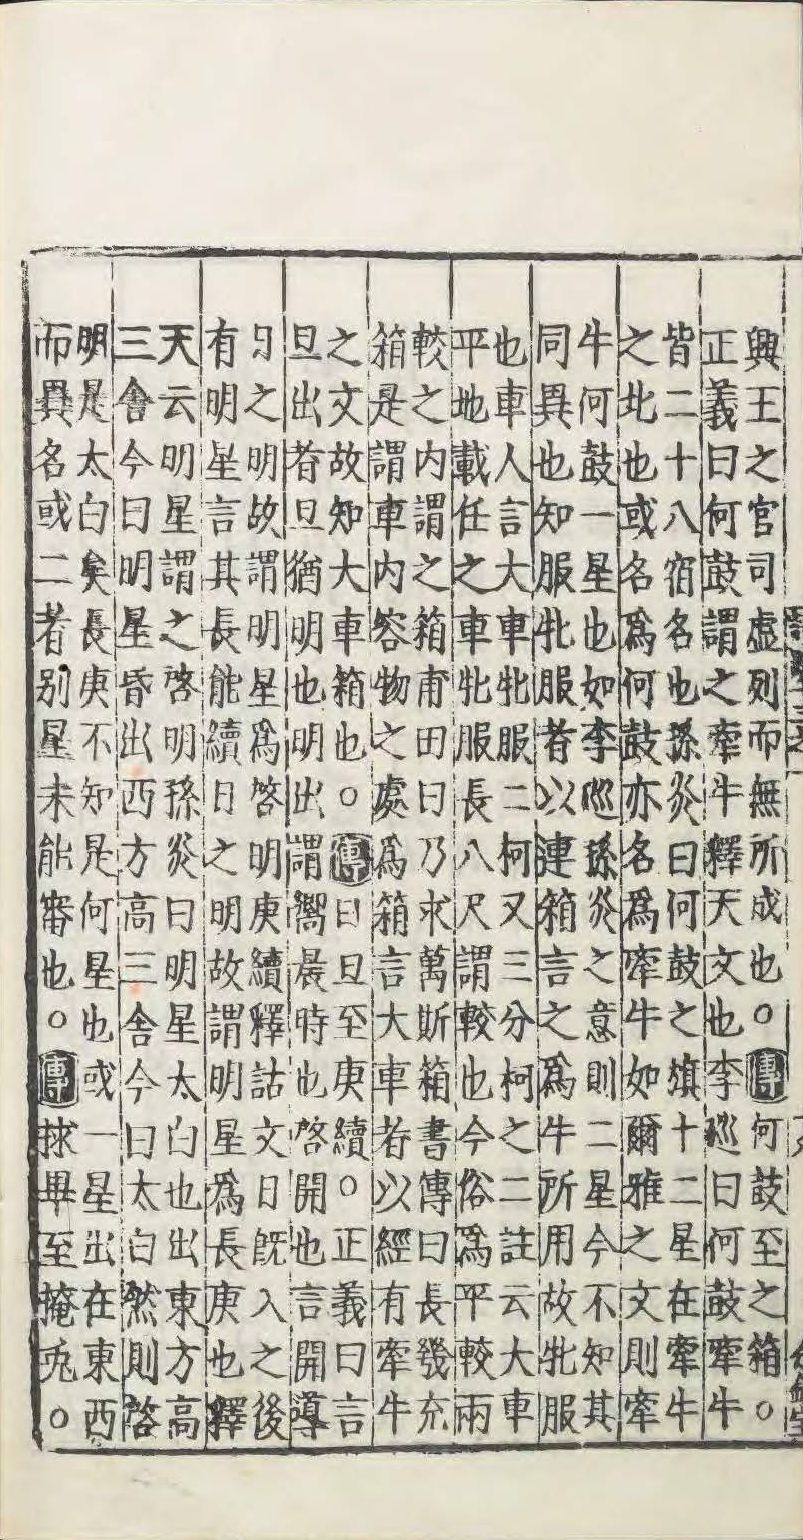 興王之官司虛列而無所成也○傳何鼓至之箱○
正義曰何鼓謂之牽牛釋天文也李巡曰何鼓牽牛
皆二十八宿名也孫炎曰何鼓之旗十二星在牽牛
之北也或名爲何鼓亦名爲牽牛如爾雅之文則牽
牛何鼓一星也如李巡孫炎之意則二星今不知其
同異也知服牝服者以連箱言之爲牛所用故牝服
也車人言大車牝服二柯又三分柯之二註云大車
平地載任之車牝服長八尺謂較也今俗爲平較兩
較之內謂之箱甫田曰乃求萬斯箱書傳曰長幾充
箱是謂車內容物之處爲箱言大車者以經有牽牛
之文故知大車箱也○傳曰旦至庚續○正義曰言
旦出者旦猶明也明出謂嚮晨時也啓開也言開導
日之明故謂明星爲啓明庚續釋詁文日旣入之後
有明星言其長能續日之明故謂明星爲長庚也釋
天云明星謂之啓明孫炎曰明星太白也出東方高
三舍今曰明星昏出西方高三舍今曰太白然則啓
明是太白矣長庚不知是何星也或一星出在東西
而異名或二者別星未能審也○傳捄畢至掩兎○